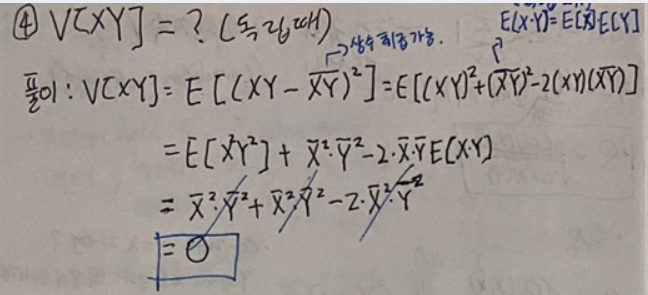 ④ V[XY] = ? (독립때)
E[X·Y]=E[X]·E[Y]
→상수 취급가능.
풀이: V[XY] = E[(XY - X̅Y̅)²] = E[(XY)²+(X̅Y̅)²-2(XY)(X̅Y̅)]
= E[X²Y²] + X̅²·Y̅² - 2·X̅·Y̅ E[X·Y]
= X̅²·Y̅² + X̅²·Y̅² - 2·X̅²·Y̅²
= 0